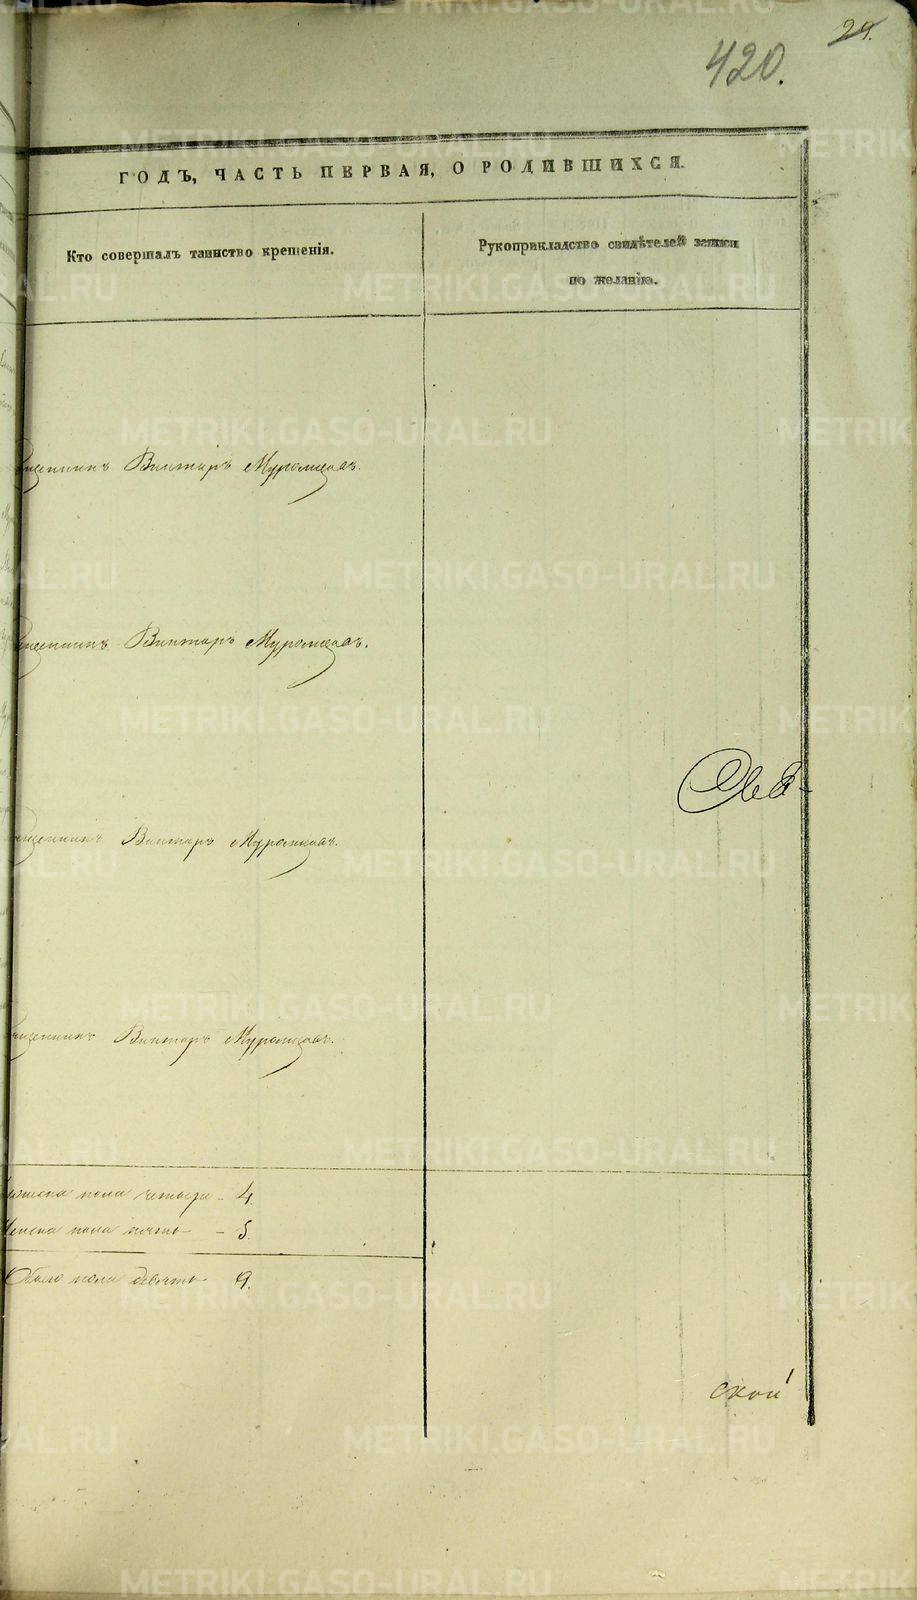 29.
420.
ГОДЪ, ЧАСТЬ ПЕРВАЯ, О РОДИВШИХСЯ.
Кто совершалъ таинство крещенія.
Рукоприкладство свидѣтелей записи
по желанію.
щенникъ Викторъ Муромцевъ.
щенникъ Викторъ Муромцевъ.
щенникъ Викторъ Муромцевъ.
щенникъ Викторъ Муромцевъ.
пола четыре - 4.
Женска пола пять - 5.
Обоего пола девять 9.
ской
METRIKI.GASO-URAL.RU